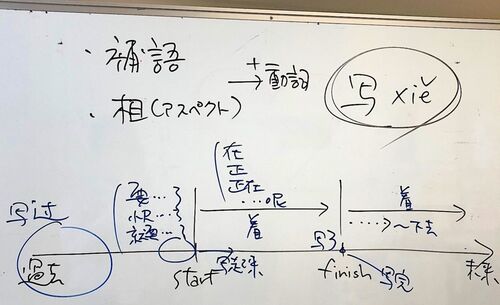 ・補語
+
→動詞
写 xiě
・相(アスペクト)
写过
要…了
快…了
就要…了
在
正
正在
……呢
着
着
……→~下去
过去
start
写起来
写了
finish
写完
未来